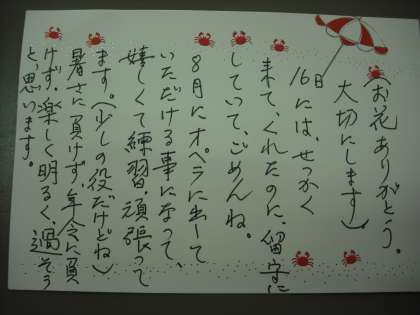 (お花ありがとう。
大切にします)
16日には、せっかく
来て、くれたのに、留守に
していて、ごめんね。
8月にオペラに出して
いただける事になって、
嬉しくて練習、頑張って
ます。(少しの役だけどね)
暑さに負けず、年令に負
けず、楽しく明るく、過そう
と、思います。